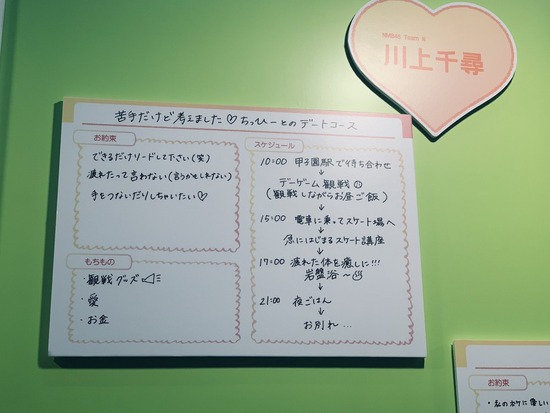 NMB48 Team N
川上千尋
苦手だけど考えました♡ ちっひーとのデートコース
お約束
できるだけリードして下さい(笑)
疲れたって言わない(言うかもしれない)
手をつないだりしちゃいたい♡
もちもの
・観戦グッズ
・愛
・お金
スケジュール
10:00 甲子園駅で待ち合わせ
↓
デーゲーム観戦
(観戦しながらお昼ご飯)
↓
15:00 電車に乗ってスケート場へ
↓
急にはじまるスケート講座
↓
17:00 疲れた体を癒しに!!!
岩盤浴～
↓
21:00 夜ごはん
↓
お別れ…
お約束